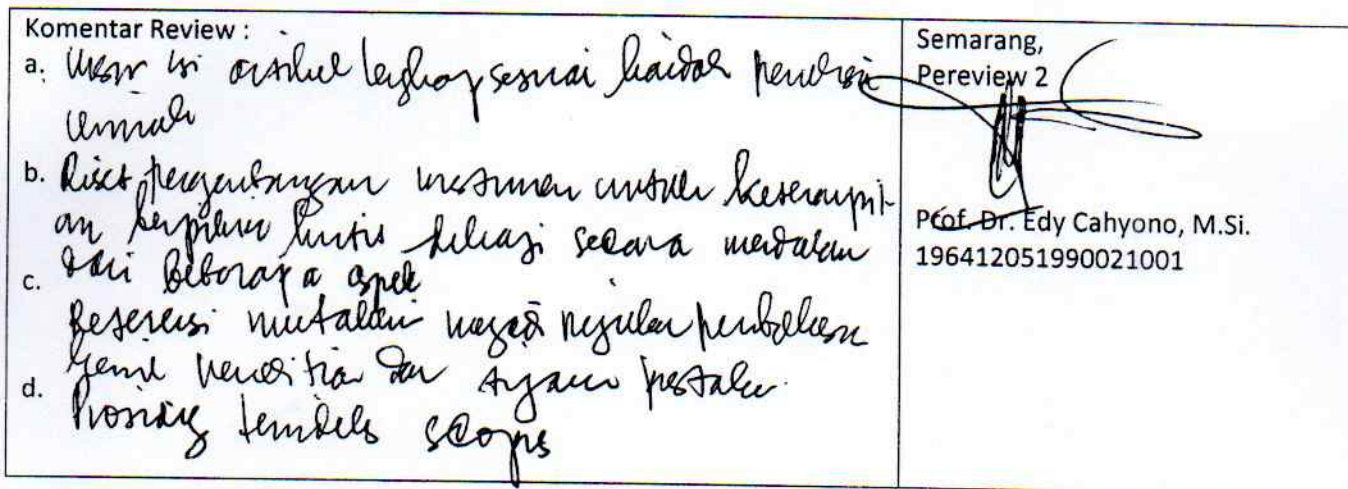 Komentar Review :
a. Unsur isi artikel lengkap sesuai kaidah penulisan
ilmiah
b. Riset pengembangan instrumen untuk keterampil-
an berpikir kritis dikaji secara mendalam
dari beberapa aspek
c. Referensi mutakhir
hasil penelitian dan tinjauan pustaka
d. Prosiding terindeks scopus
Semarang,
Pereview 2
Prof. Dr. Edy Cahyono, M.Si.
196412051990021001